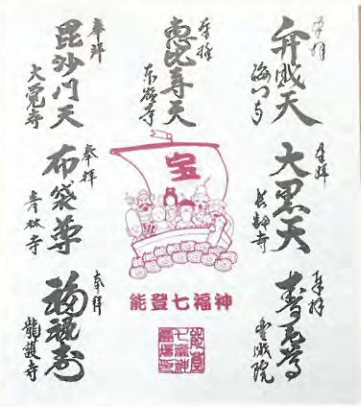 奉拝
弁戝天
海門寺
奉拝
大黒天
長齢寺
奉拝
寿老尊
奉拝
恵比寿天
東嶺寺
宝
能登七福神
能登
七福神
奉拝
毘沙門天
大覚寺
奉拝
布袋尊
青林寺
奉拝
福禄寿
龍護寺